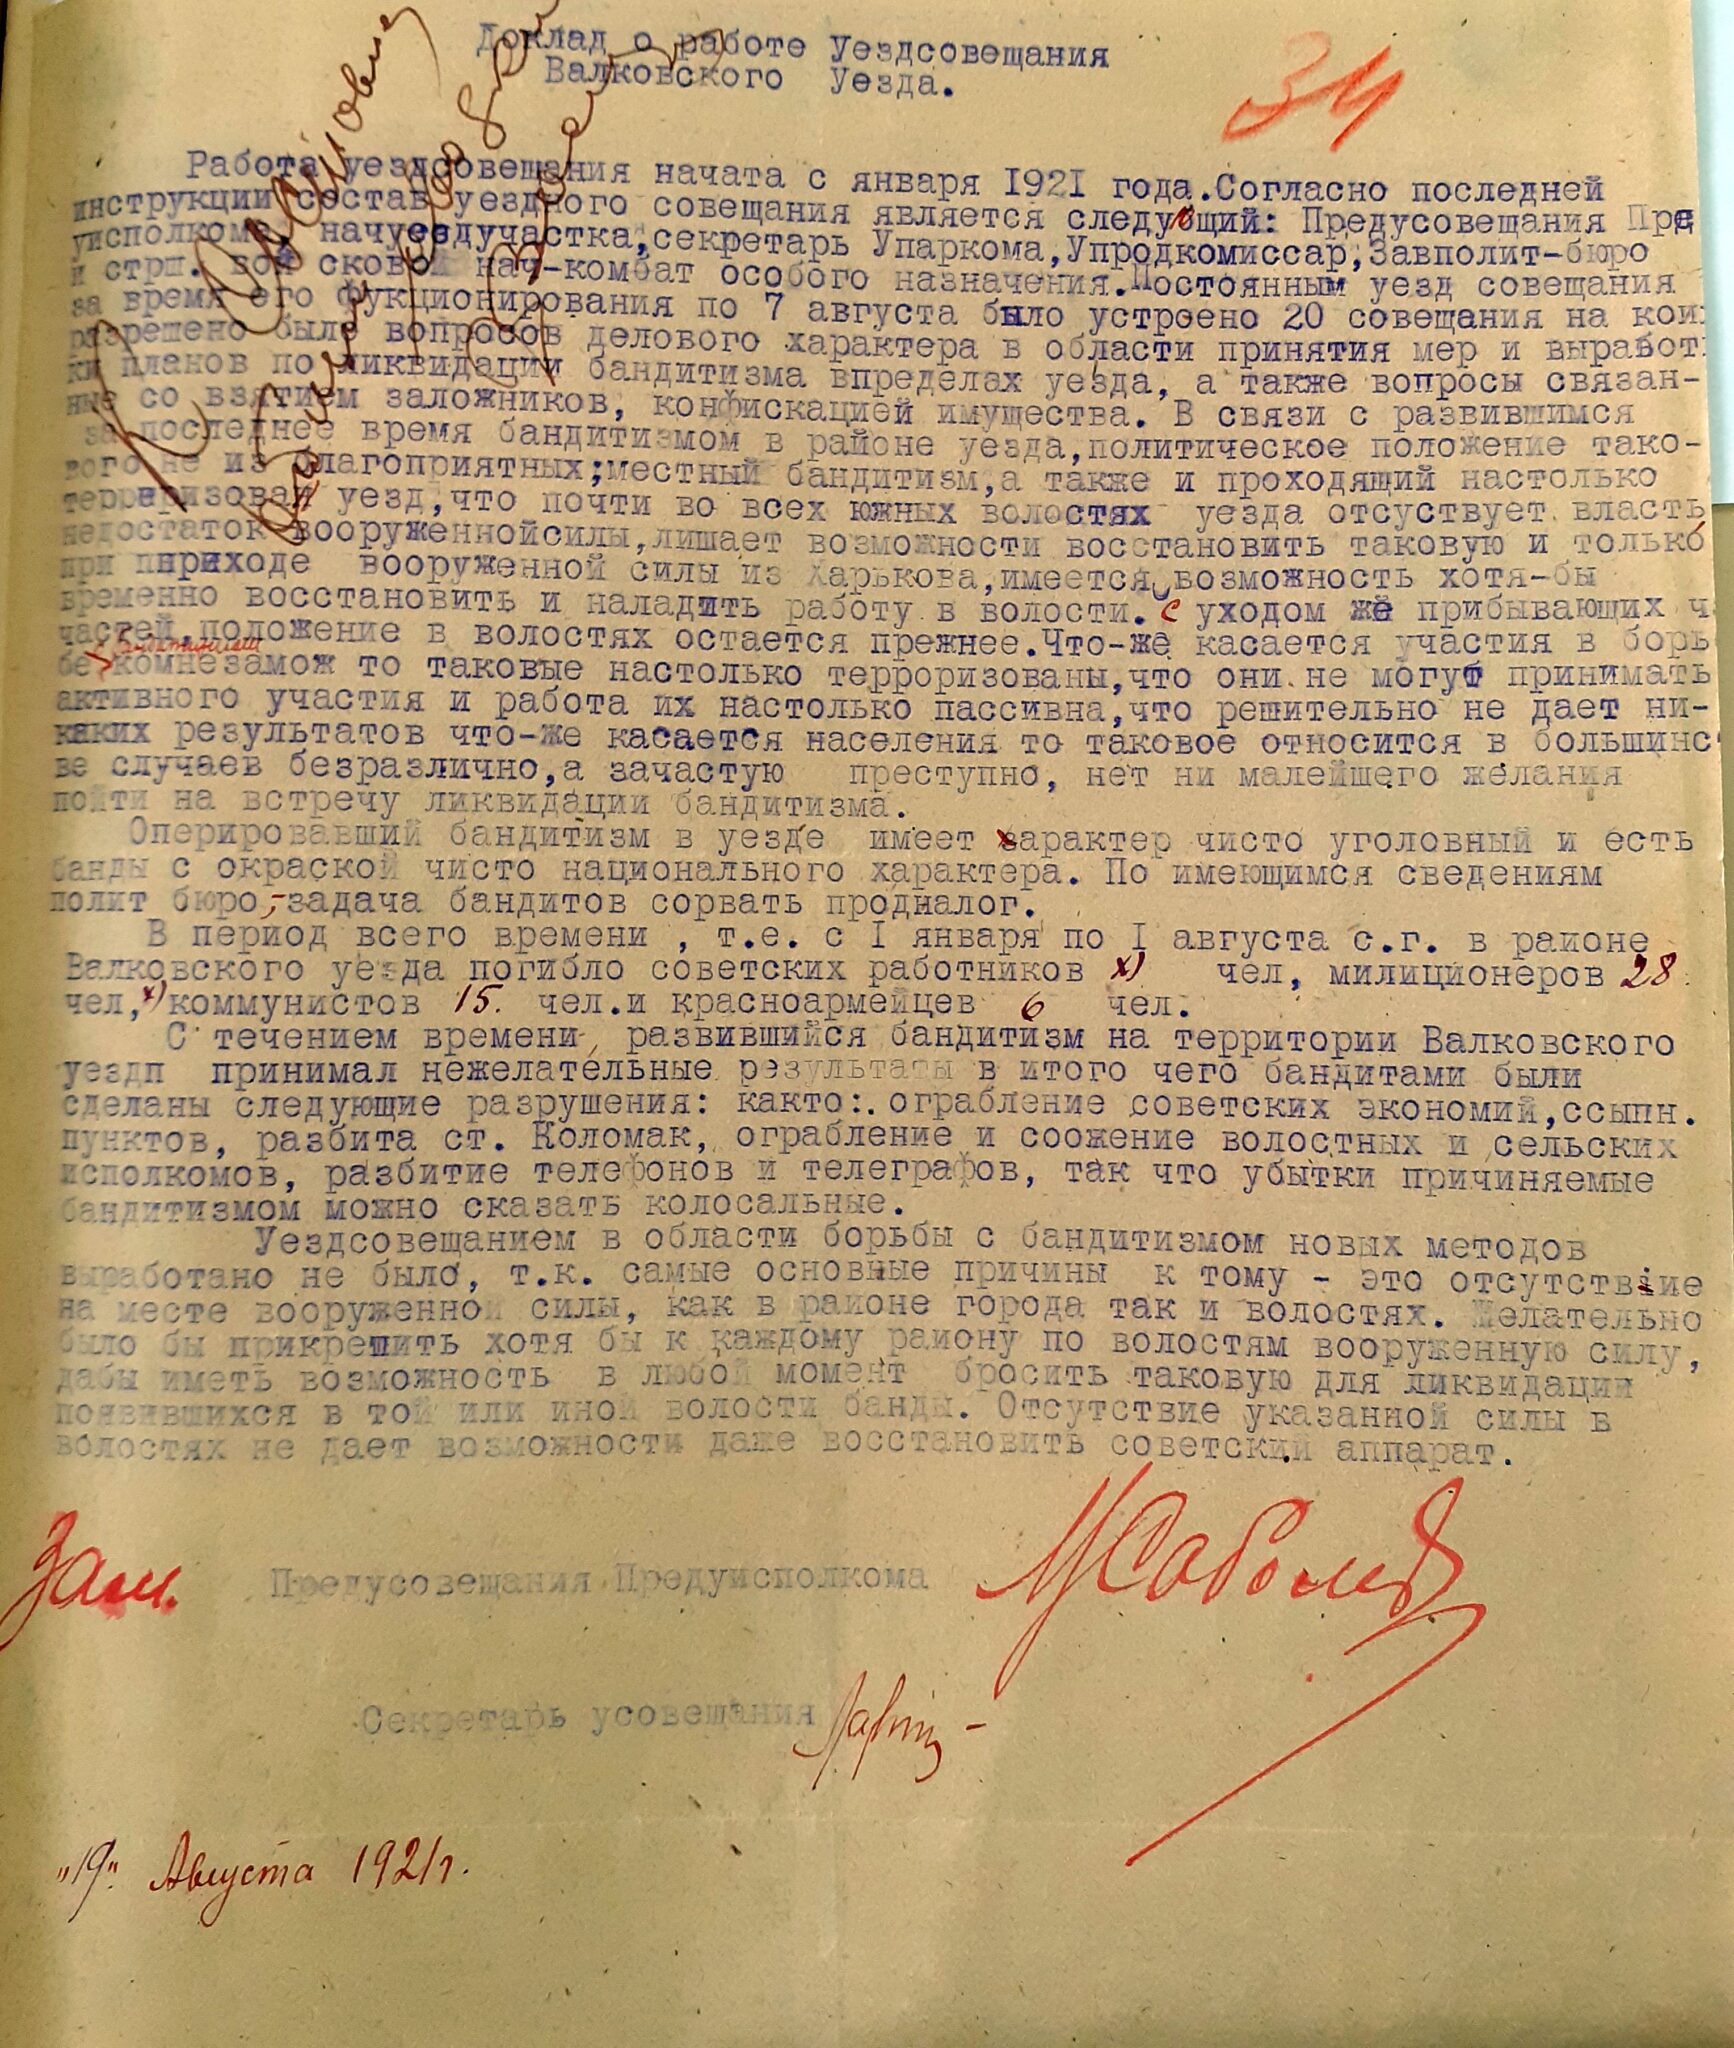 Доклад о работе Уездсовещания
Валковского Уезда.
34
Работа уездсовещания начата с января 1921 года.Согласно последней
инструкции состав уездного совещания является следующий: Предусовещания Пред
уисполкома, начуездучастка,секретарь Упаркома,Упродкомиссар,Завполит-бюро
и нач-комбат особого назначения.Постоянным уезд совещания
за время его фукционирования по 7 августа было устроено 20 совещания на коих
разрешено было вопросов делового характера в области принятия мер и выработ
ки планов по ликвидации бандитизма впределах уезда, а также вопросы связан-
ные со взятием заложников, конфискацией имущества. В связи с развившимся
за последнее время бандитизмом в районе уезда,политическое положение тако-
вого не из благоприятных;местный бандитизм,а также и проходящий настолько
терраризовал уезд,что почти во всех южных волостях уезда отсуствует власть
недостаток вооруженнойсилы,лишает возможности восстановить таковую и только
при приходе вооруженной силы из Харькова,имеется возможность хотя-бы
временно восстановить и наладить работу в волости. С уходом же прибывающих ч
частей,положение в волостях остается прежнее.Что-же касается участия в борь
бе с бандитизмом комнезамож то таковые настолько терроризованы,что они не могут принимать
активного участия и работа их настолько пассивна,что решительно не дает ни-
каких результатов что-же касается населения то таковое относится в большинст
ве случаев безразлично,а зачастую преступно, нет ни малейшего желания
пойти на встречу ликвидации бандитизма.
Оперировавший бандитизм в уезде имеет характер чисто уголовный и есть
банды с окраской чисто национального характера. По имеющимся сведениям
полит бюро,-задача бандитов сорвать продналог.
В период всего времени , т.е. с I января по I августа с.г. в районе
Валковского уезда погибло советских работников х) чел, милиционеров 28
чел,х)коммунистов 15. чел.и красноармейцев 6 чел.
С течением времени, развившийся бандитизм на территории Валковского
уездп принимал нежелательные результаты в итого чего бандитами были
сделаны следующие разрушения: както:.ограбление советских экономий,ссыпн.
пунктов, разбита ст. Коломак, ограбление и соожение волостных и сельских
исполкомов, разбитие телефонов и телеграфов, так что убытки причиняемые
бандитизмом можно сказать колосальные.
Уездсовещанием в области борьбы с бандитизмом новых методов
выработано не было, т.к. самые основные причины к тому - это отсутствие
на месте вооруженной силы, как в районе города так и волостях. Желательно
было бы прикрепить хотя бы к каждому району по волостям вооруженную силу,
дабы иметь возможность в любой момент бросить таковую для ликвидации
появившихся в той или иной волости банды. Отсутствие указанной силы в
волостях не дает возможности даже восстановить советский аппарат.
Зам. Предусовещания Предуисполкома
Секретарь усовещания
"19" Августа 1921г.